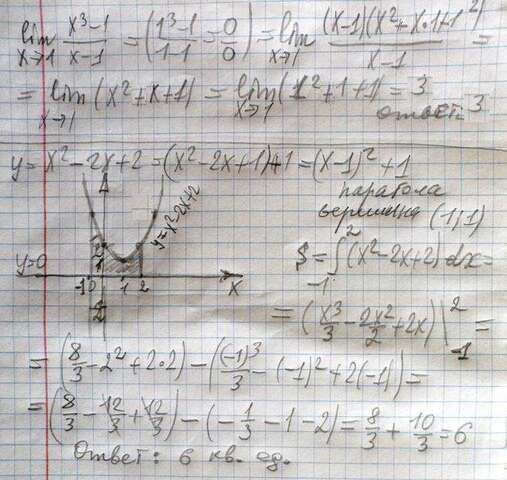 lim x→1 (x³-1)/(x-1) = ((1³-1)/(1-1) = 0/0) = lim x→1 ((x-1)(x²+x·1+1²))/(x-1) =
= lim x→1 (x²+x+1) = lim x→1 (1²+1+1) = 3
ответ: 3
y = x²-2x+2 = (x²-2x+1)+1 = (x-1)²+1
парабола
вершина (1;1)
y=x²-2x+2
y=0
-1 0 1 2 x
S = ∫₋₁² (x²-2x+2) dx =
= (x³/3 - 2x²/2 + 2x) |₋₁² =
= (8/3 - 2² + 2·2) - ((-1)³/3 - (-1)² + 2(-1)) =
= (8/3 - 12/3 + 12/3) - (-1/3 - 1 - 2) = 8/3 + 10/3 = 6
Ответ: 6 кв. ед.